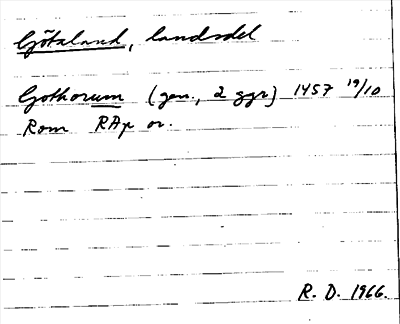 Götaland, landsdel
Gothorum (gen., 2 ggr) 1457 19/10
Rom RAp or.
R. D. 1966.